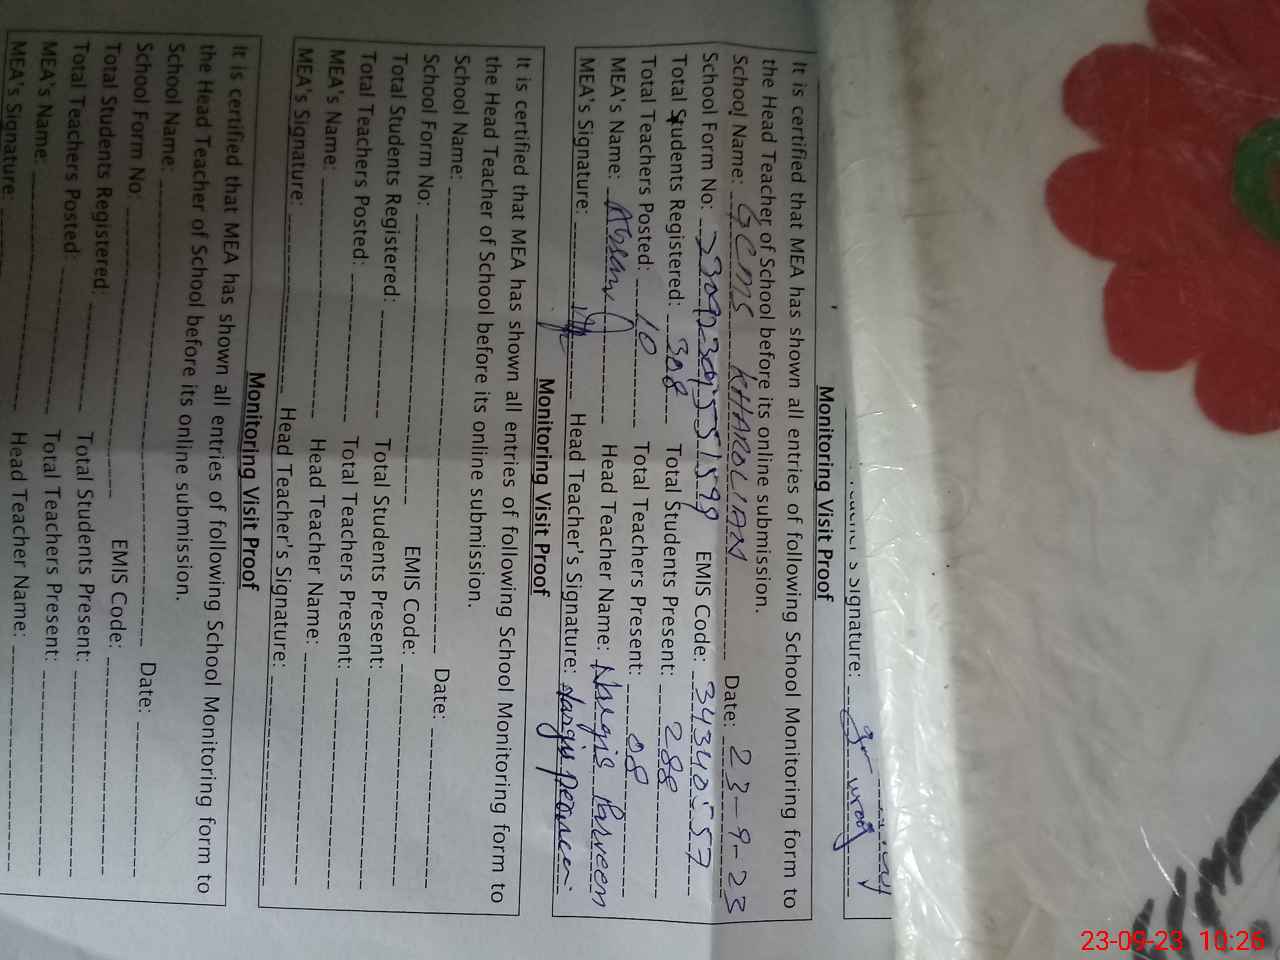 Signature:
Monitoring Visit Proof
It is certified that MEA has shown all entries of following School Monitoring form to
the Head Teacher of School before its online submission.
School Name: GCMS KHAROLIAN Date: 23-9-23
School Form No: EMIS Code: 34340557
Total Students Registered: 308 Total Students Present: 288
Total Teachers Posted: 10 Total Teachers Present: 08
MEA's Name: Head Teacher Name: Nargis Parveen
MEA's Signature: Head Teacher's Signature: Nargis Parveen
Monitoring Visit Proof
It is certified that MEA has shown all entries of following School Monitoring form to
the Head Teacher of School before its online submission.
School Name: Date:
School Form No: EMIS Code:
Total Students Registered: Total Students Present:
Total Teachers Posted: Total Teachers Present:
MEA's Name: Head Teacher Name:
MEA's Signature: Head Teacher's Signature:
Monitoring Visit Proof
It is certified that MEA has shown all entries of following School Monitoring form to
the Head Teacher of School before its online submission.
School Name: Date:
School Form No: EMIS Code:
Total Students Registered: Total Students Present:
Total Teachers Posted: Total Teachers Present:
MEA's Name: Head Teacher Name:
MEA's Signature:
23-09-23 10:26